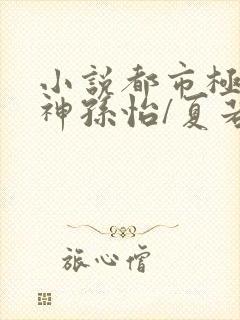 小說都市極
神孫怡/夏若
旅心僧